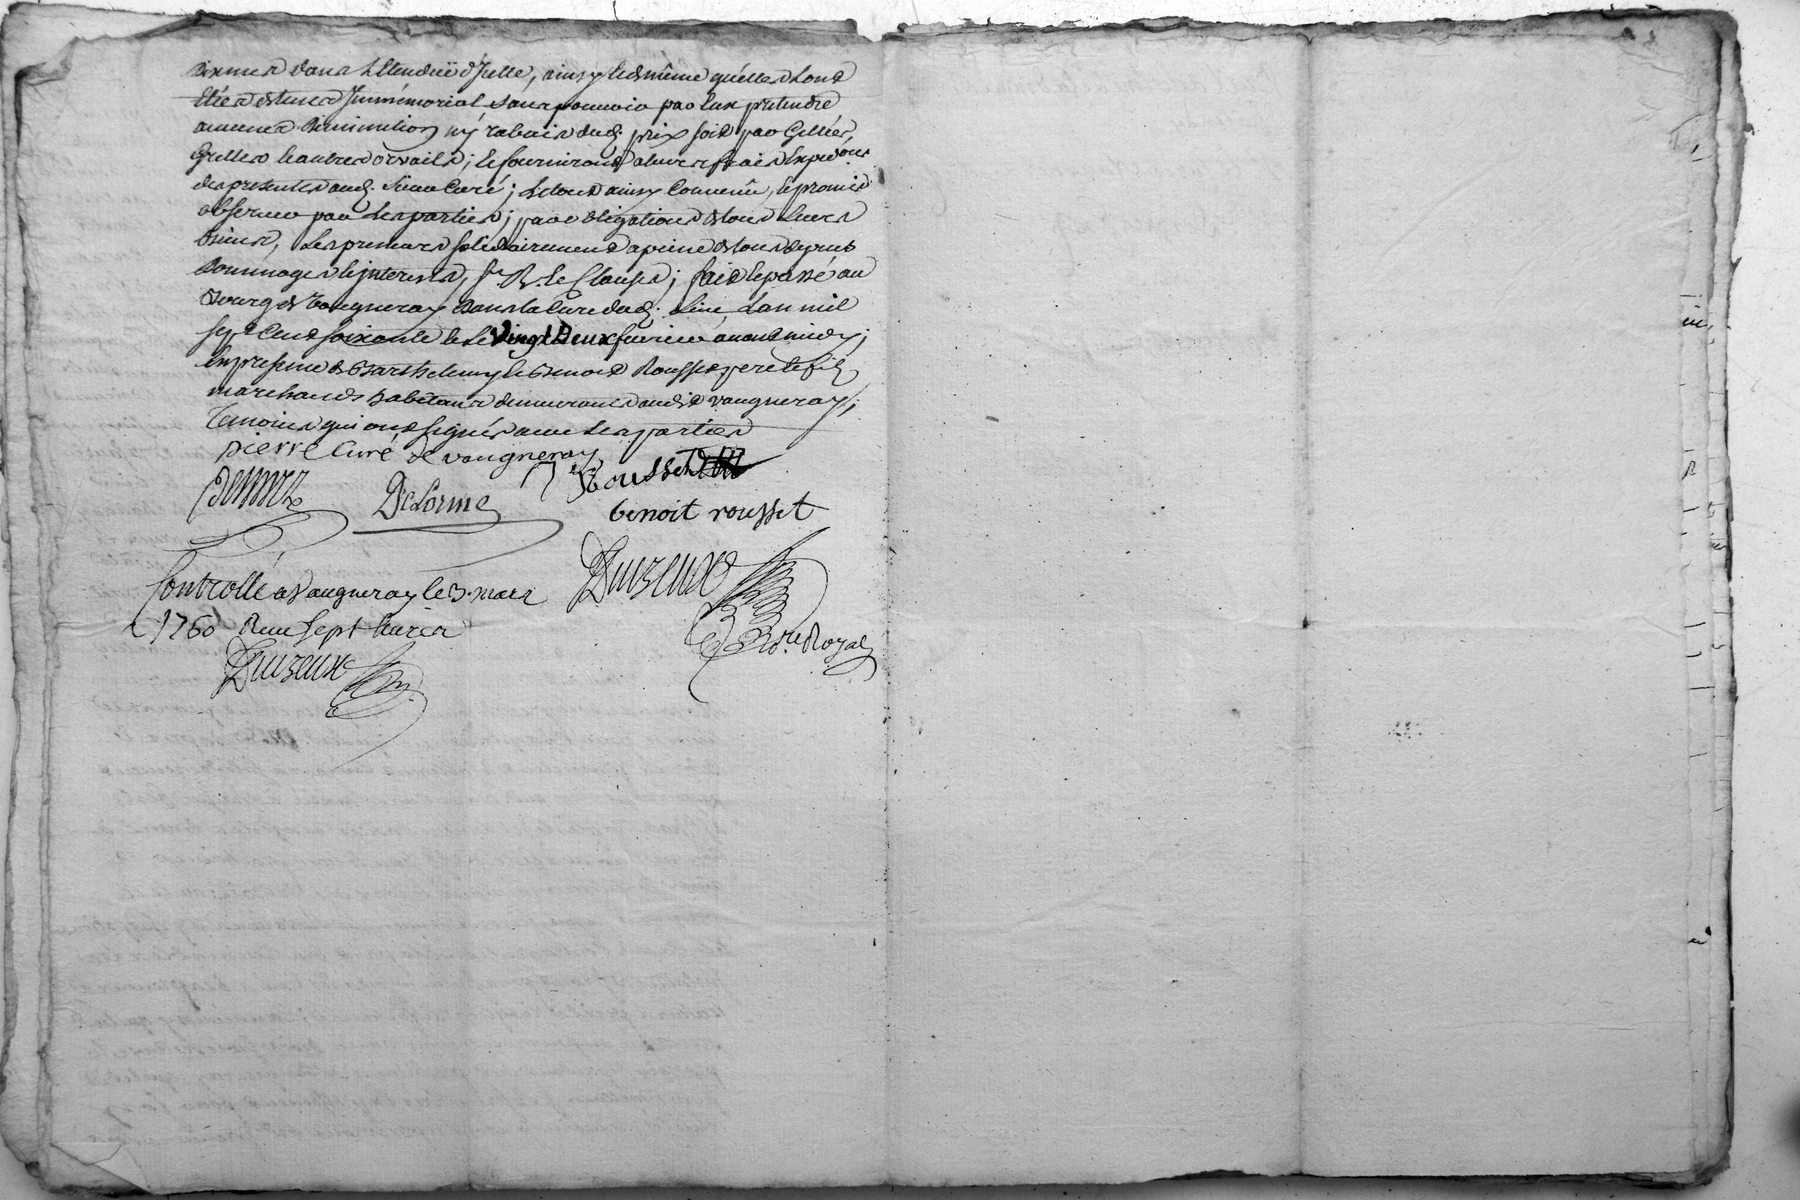 dixmes dans L'Etendüe d'Icelle, ainsy et de même qu'elles sont
Eté de tems Immémorial sans pouvoir par Eux pretendre
aucunes diminution ny rabais dud. prix soit par Gellées,
Grelles & autres orvails; & fourniront a leurs frais Expedons
des presentes aud. Sieur Curé; Le tout ainsy Convenû, & promis
observer par Les parties; par obligations de tous Leurs
biens, Les preneurs solidairement a peine de tous depens
dommages & interests, & Clauses; fait & passé au
Bourg de Vaugneray dans la Cure dud. Lieu, L'an mil
sept Cent soixante & Le Vingt Deux fevrier avant midy;
En presence de Barthelemy & Benoit Rousset pere & fils
marchands habitans demeurants audit Vaugneray;
Temoins qui ont signés avec Les parties
pierre Curé de vaugneray
DeLorme
Rousset
benoit rousset
Controllé a Vaugneray le 3. mars
1760 Reçu sept Livres
Duzeux
Nore. Royal
Duzeux